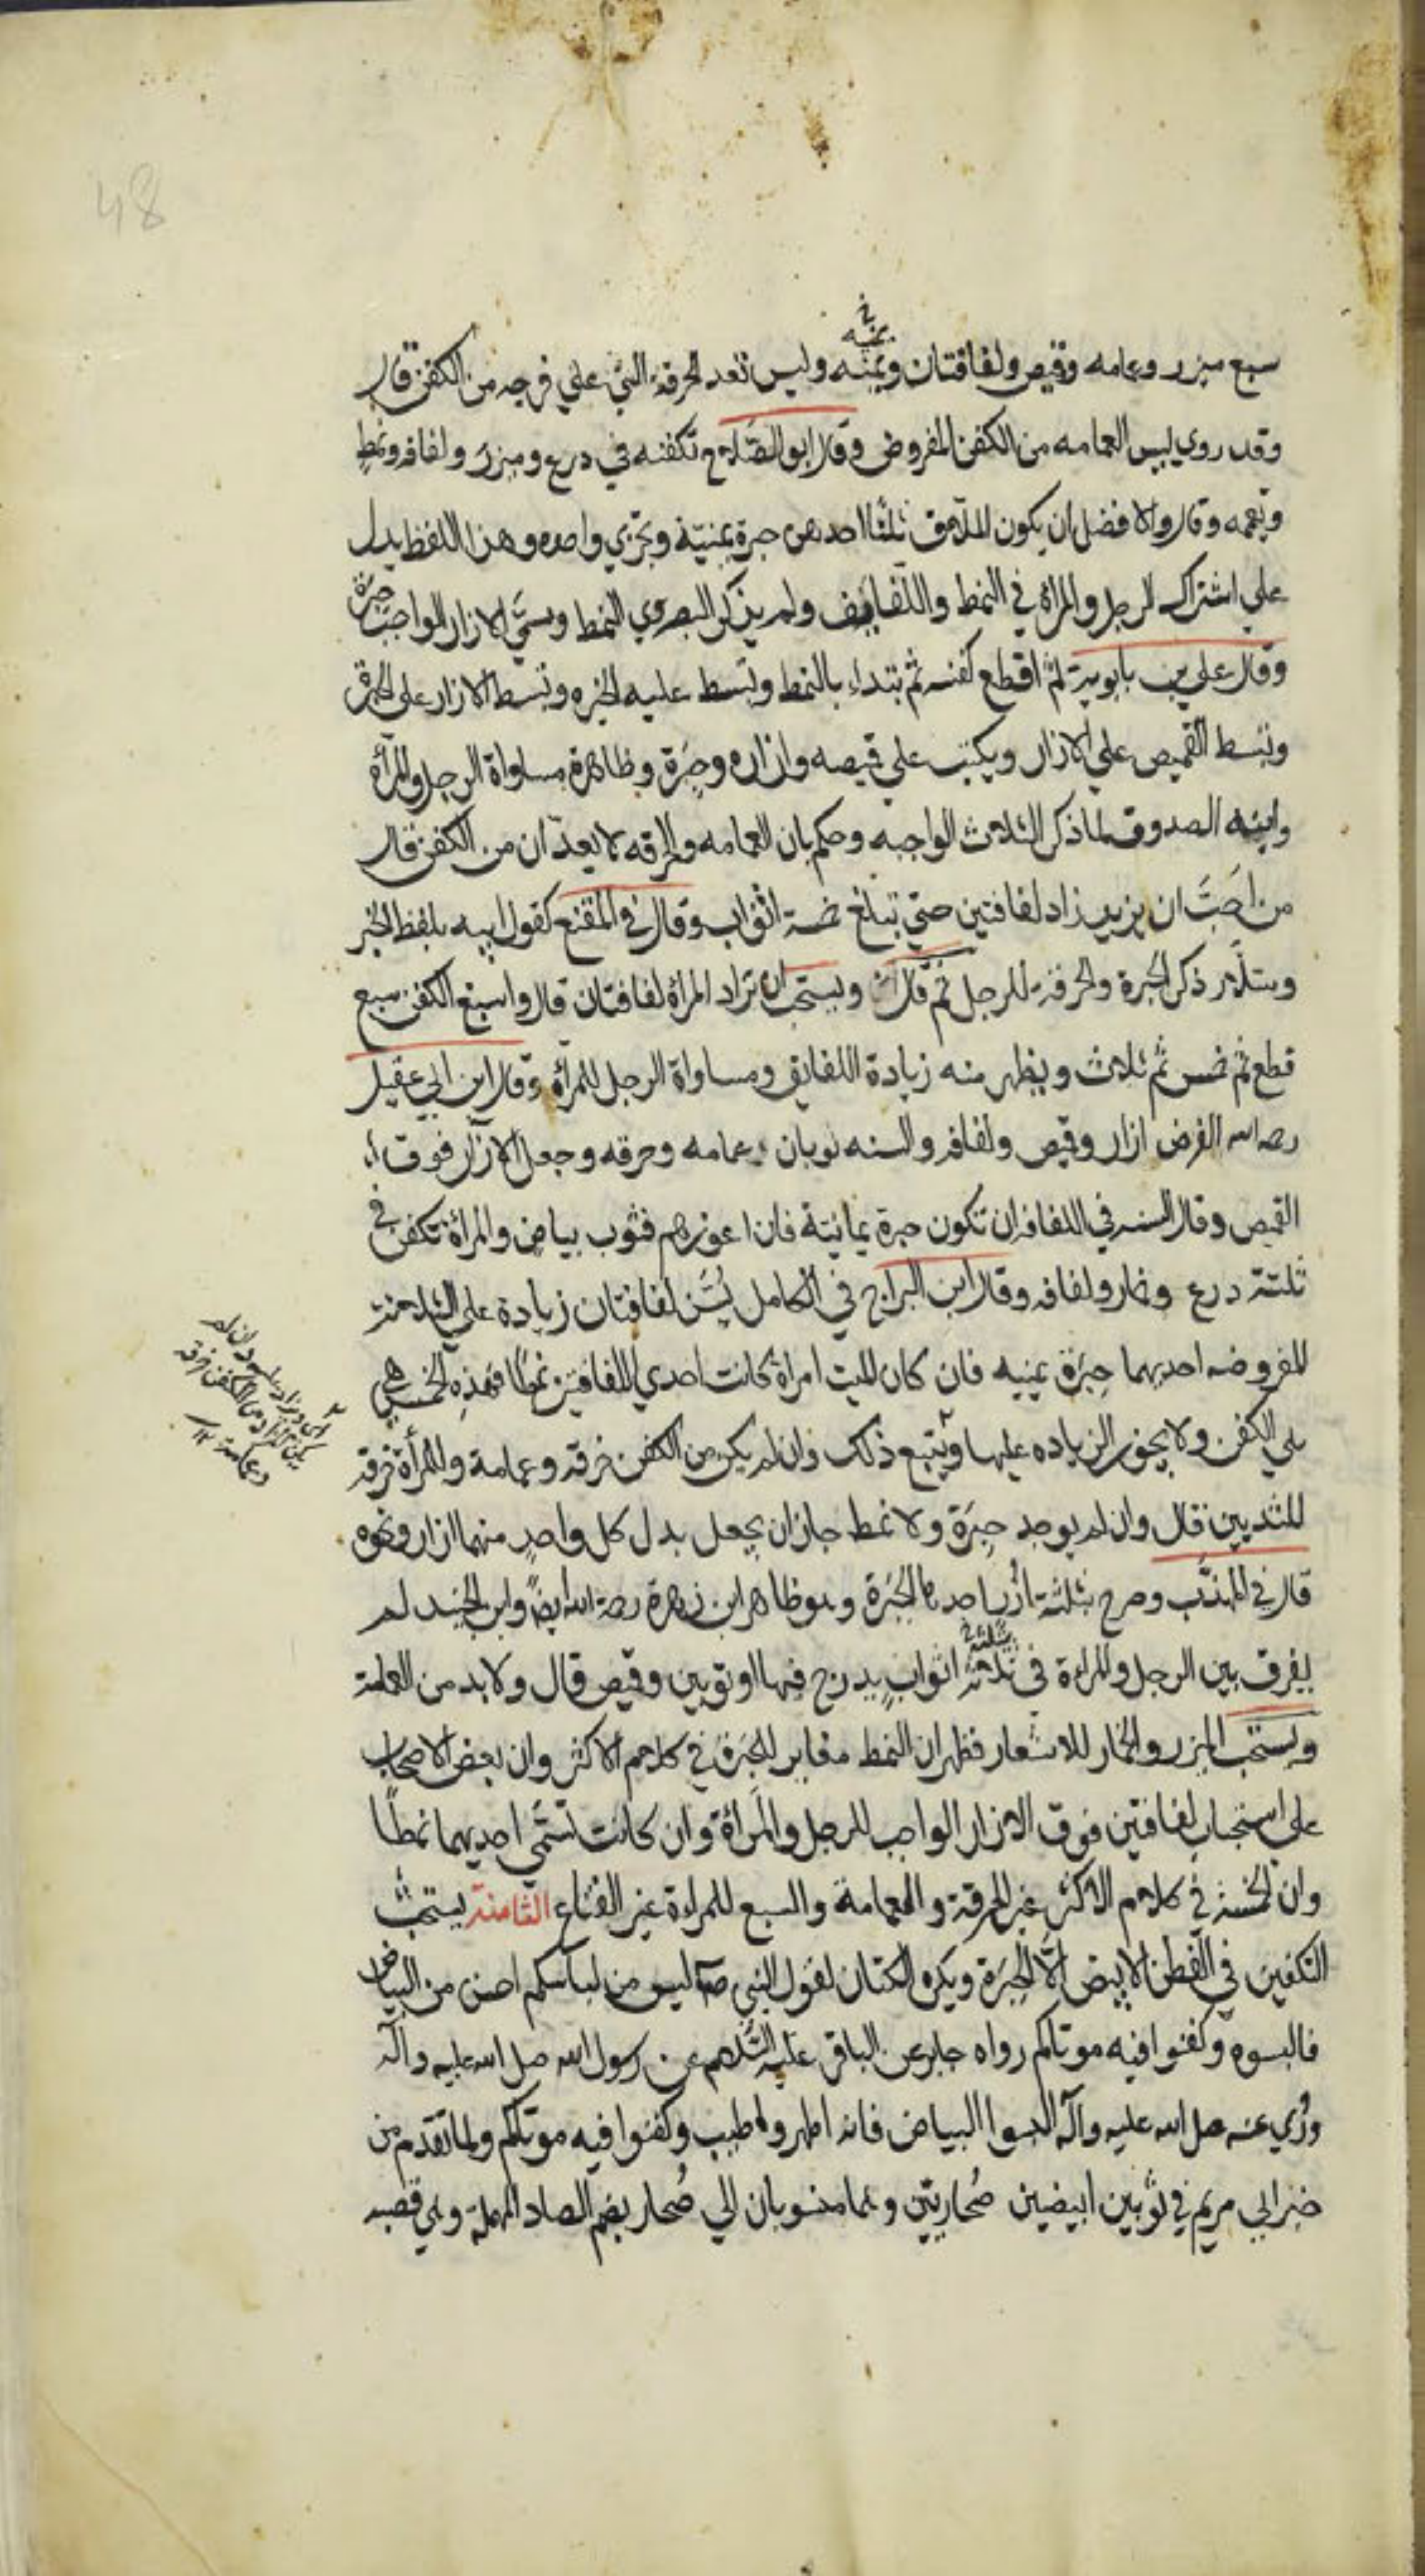 48
سبع ميزر وعمامه وقميص ولفافتان ويمنه وليس تعد الخرقة التي علي فرجه من الكفن قال
وقد روي ليس العمامه من الكفن المفروض وقال ابو الصلاح تكفنه في درع وميزر ولفافه ونمط
ويعممه وقال والافضل ان يكون الملآحف ثلثا احدهن حبرة يمنية وتجزي واحده وهذا اللفظ يدل
علي اشتراك الرجل والمراة في النمط واللفايف ولم يذكر البصروي النمط وسمي الازار الواجب حبرة
وقال علي بن بابويه ثم اقطع كفنه ثم تبتداء بالنمط وتبسط عليه الحبره وتبسط الازار علي الحبرة
وتبسط القميص علي الازار ويكتب علي قميصه وازاره وحبرة وظاهره مساواة الرجل والمرأة
وابنه الصدوق لما ذكر الثلاث الواجبه وحكم بان العمامه والخرقه لا يعدّان من الكفن قال
من احَبَّ ان يزيد زاد لفافتين حتي تبلغ خمسة اثواب وقال في المقنع كقول ابيه بلفظ الخبر
وسلّار ذكر الحبرة والخرقة للرجل ثم قال ويستحب ان تزاد المراة لفافتان قال واسبغ الكفن سبع
قطع ثم خمس ثم ثلاث ويظهر منه زيادة اللفايف ومساواة الرجل للمرأة وقال ابن ابي عقيل
رحمه الله الفرض ازار وقميص ولفافه والسنه ثوبان عمامه وخرقه وجعل الازار فوق
القميص وقال السنه في اللفافه ان تكون حبرة يمانية فان اعوزهم فثوب بياض والمرأة تكفن في
ثلثة درع وخمار ولفافه وقال ابن البراج في الكامل يُسَن لفافتان زيادة علي الثلاثة
المفروضه احديهما حِبَرَة يمنيه فان كان الميت امراة كانت احدي اللفافتين نمطا فهذه الخمس هي
كلي الكفن ولا يجوز الزياده عليها ويتبع ذلك وان لم يكن من الكفن خرقة وعمامة وللمرأة خرقة
للثديين قال وان لم يوجد حِبَرَة ولا نمط جاز ان يجعل بدل كل واحدٍ منهما ازار ونحوه
قال في المهذّب وصرح بثلثة أزُر احدها الحبَرة وهو ظاهر ابن زهرة رحمه الله ايضاً وابن الجنيد لم
يفرق بين الرجل والمراءة في ثلاثة اثوابٍ يدرج فيها او ثوبين وقميص قال ولا بد من العمامة
ويستحب الميزر والخمار للاشعار فظهر ان النمط مغاير للحبرة في كلام الاكثر وان بعض الاصحاب
علي استحباب لفافتين فوق الازار الواجب للرجل والمرأة وان كانت تسمّي احديهما نمطًا
وان الخمسة في كلام الاكثر غير الخرقة والعمامة والسبع للمراءة غير القناع الثامنة يستحبّ
التكفين في القطن الابيض الّا الحبَرة ويكره الكتان لقول النبي صآ ليس من لباسكم احسن من البياض
فالبسوه وكفنوا فيه موتاكم رواه جابر عن الباقر عليه السّلام عن رسول الله صلي الله عليه وآله
ورُوي عنه صلي الله عليه وآله البسوا البياض فانه اطهر واطيب وكفنوا فيه موتاكم ولما تقدم من
خبر ابي مريم في ثوبين ابيضين صُحاريّين وهما منسوبان الي صُحار بضم الصاد المهملة وهي قصبه
يمنه خ
بثلثة خ